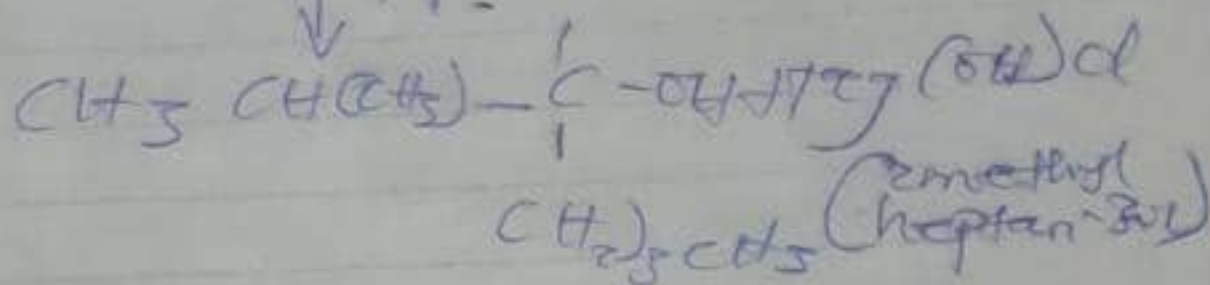 CH3 CH(CH3) - C - OH + Mg (OH) Cl
(CH2)3 CH3 (2methyl
heptan-3ol)